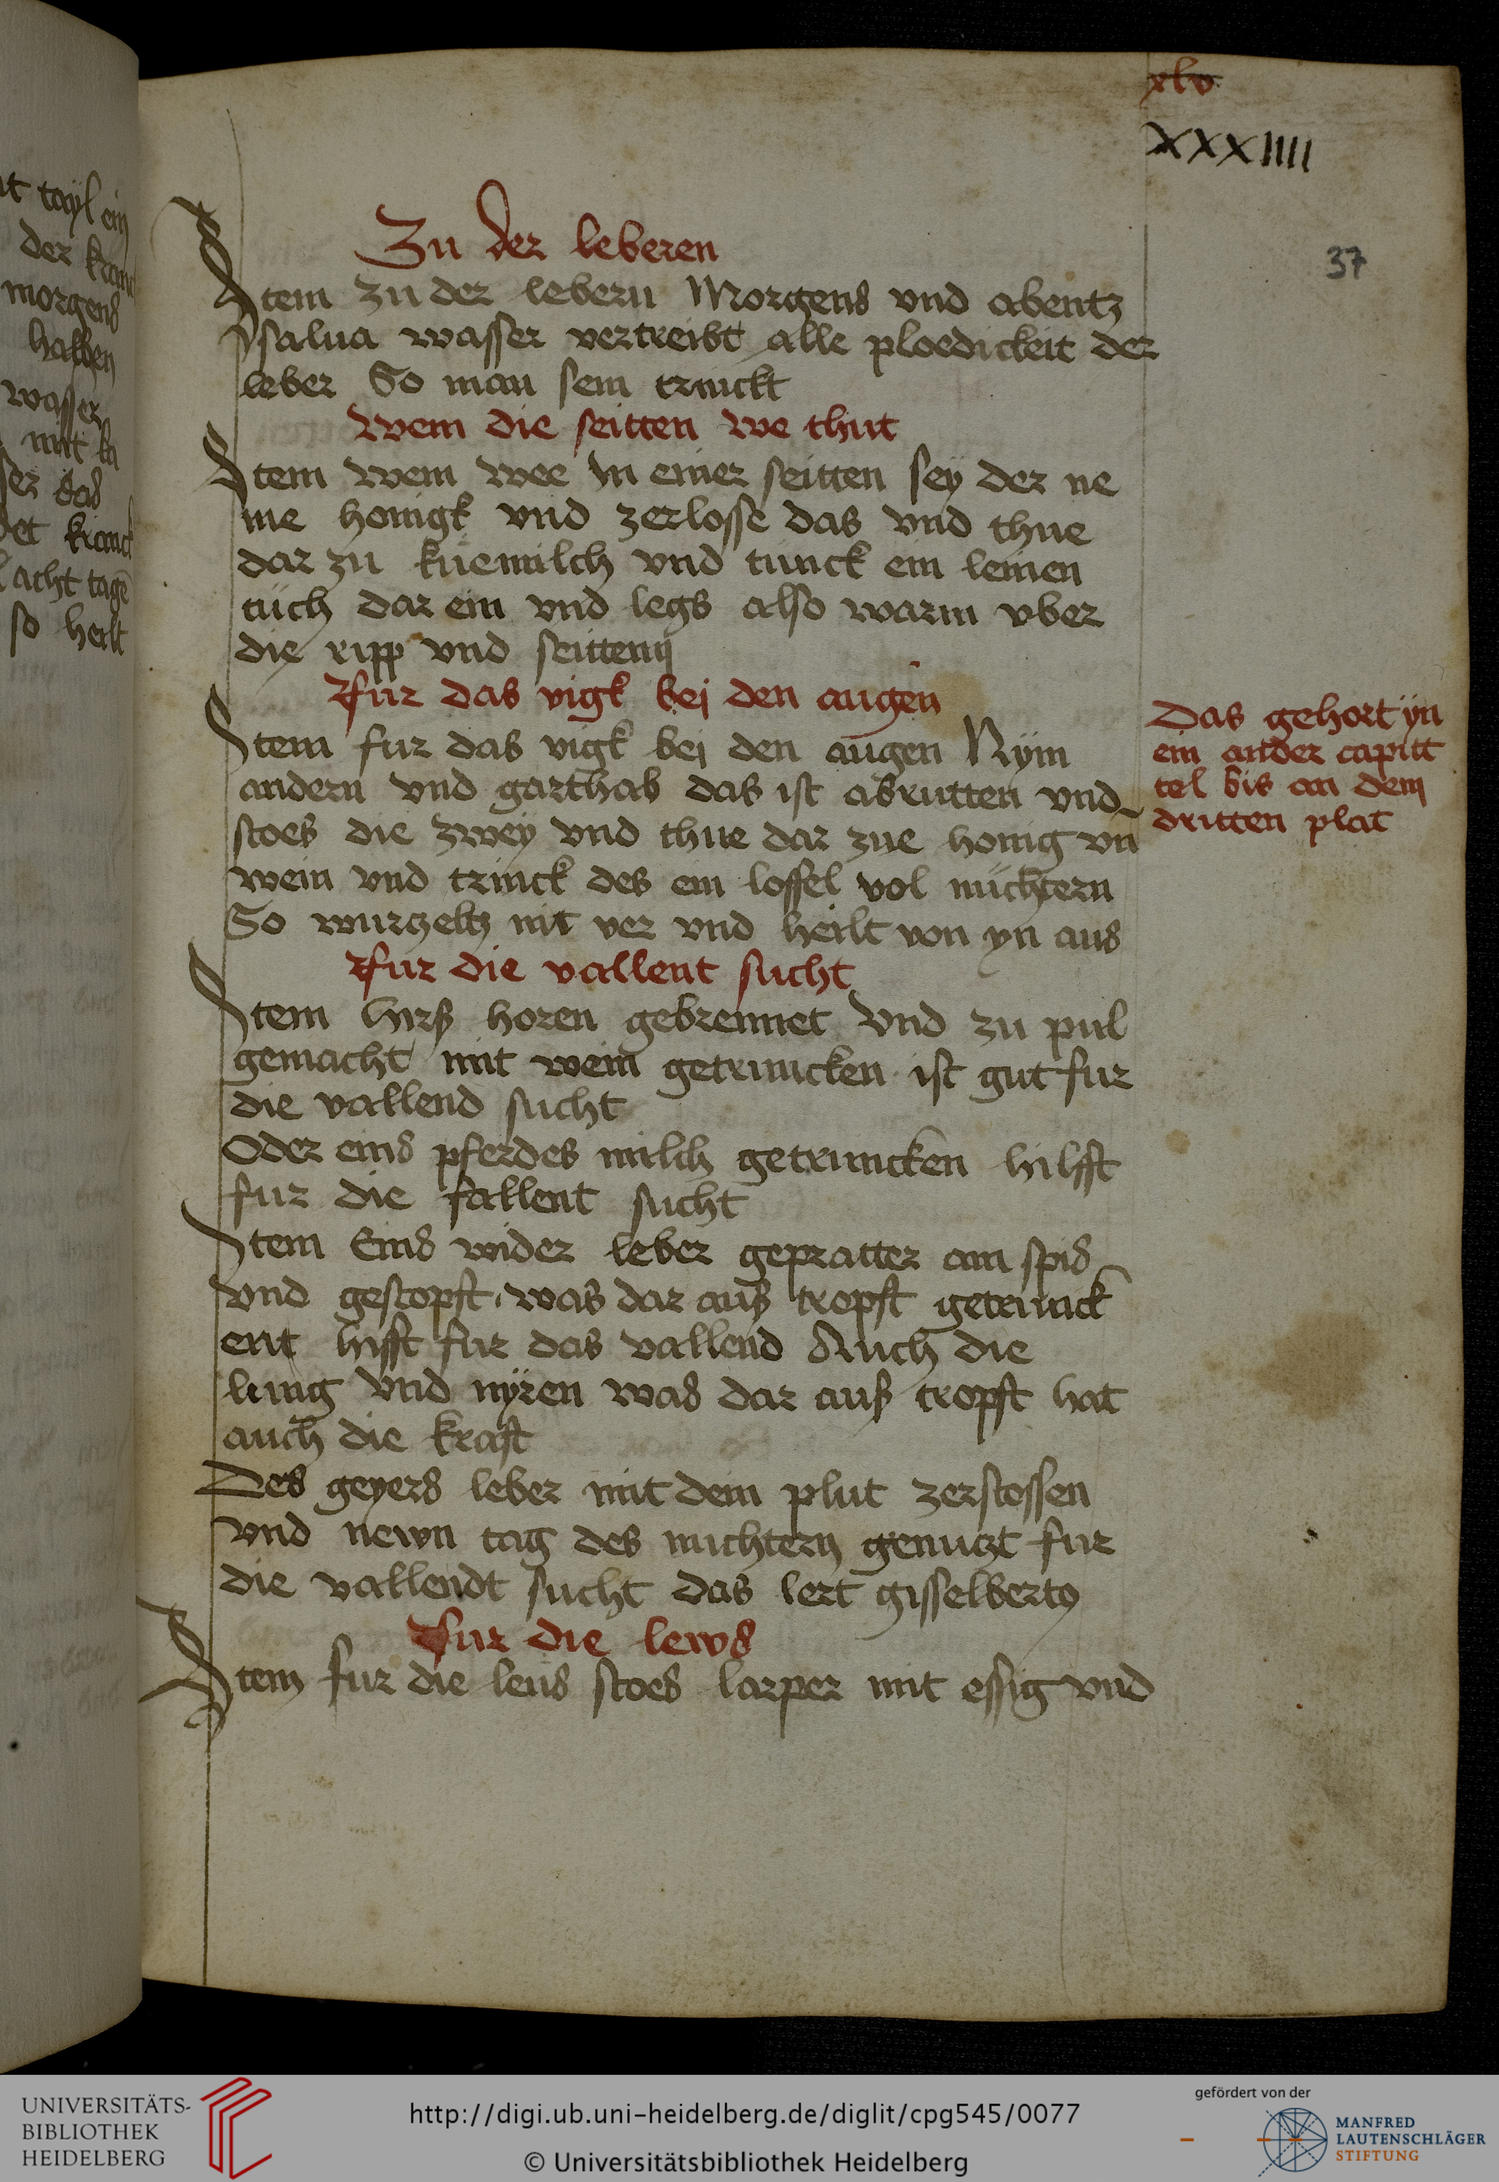 xlv
XXXIIII
37
Zu der leberen
Item zu der lebern Morgens vnd abentz
salua wasser vertreibt alle ploedickeit der
leber So man sein trinckt
Wem die seitten we thut
Item wem wee In einer seitten sey der ne
me honigk vnd zerlosse das vnd thue
dar zu küemilch vnd tunck ein leinen
tuch dar ein vnd legs also warm vber
die ripp vnd seitten
Fur das vigk bej den augen
Item fur das vigk bej den augen Nÿm
andern vnd garthab das ist abrutten vnd
stoes die zwey vnd thue dar zue honig vn
wein vnd trinck des ein loffel vol nüchtern
So wurtzeltz nit ver vnd heilt von yn aus
Das gehort ÿn
ein ander capitt
tel bis an dem
dritten plat
Fur die vallent sucht
Item hirß horen gebrennet Vnd zu pul
gemacht mit wein getruncken ist gut fur
die vallend sucht
Oder eins pferdes milch getruncken hilfft
fur die fallent sucht
Item Eins wider leber gepratter am spis
vnd gestopft was dar auß tropft getrunck
ent hifft fur das vallend Auch die
lung vnd nÿren was dar auß tropft hat
auch die kraft
Des geyers leber mit dem plut zerstossen
vnd newn tag des nuchtern genutzt fur
die vallendt sucht das lert gisselbert9
Fur die lews
Item fur die leus stoes larper mit essig vnd
it tayl ein
der kranc
morgens
halben
wasser
mit ka
ser das
det kranck
acht tage
so heilt
UNIVERSITÄTS-
BIBLIOTHEK
HEIDELBERG
http://digi.ub.uni-heidelberg.de/diglit/cpg545/0077
© Universitätsbibliothek Heidelberg
gefördert von der
MANFRED
LAUTENSCHLÄGER
STIFTUNG